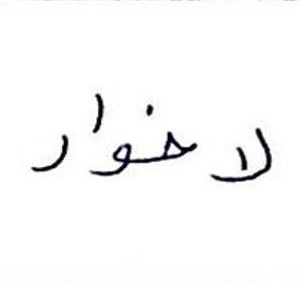 لا خوار